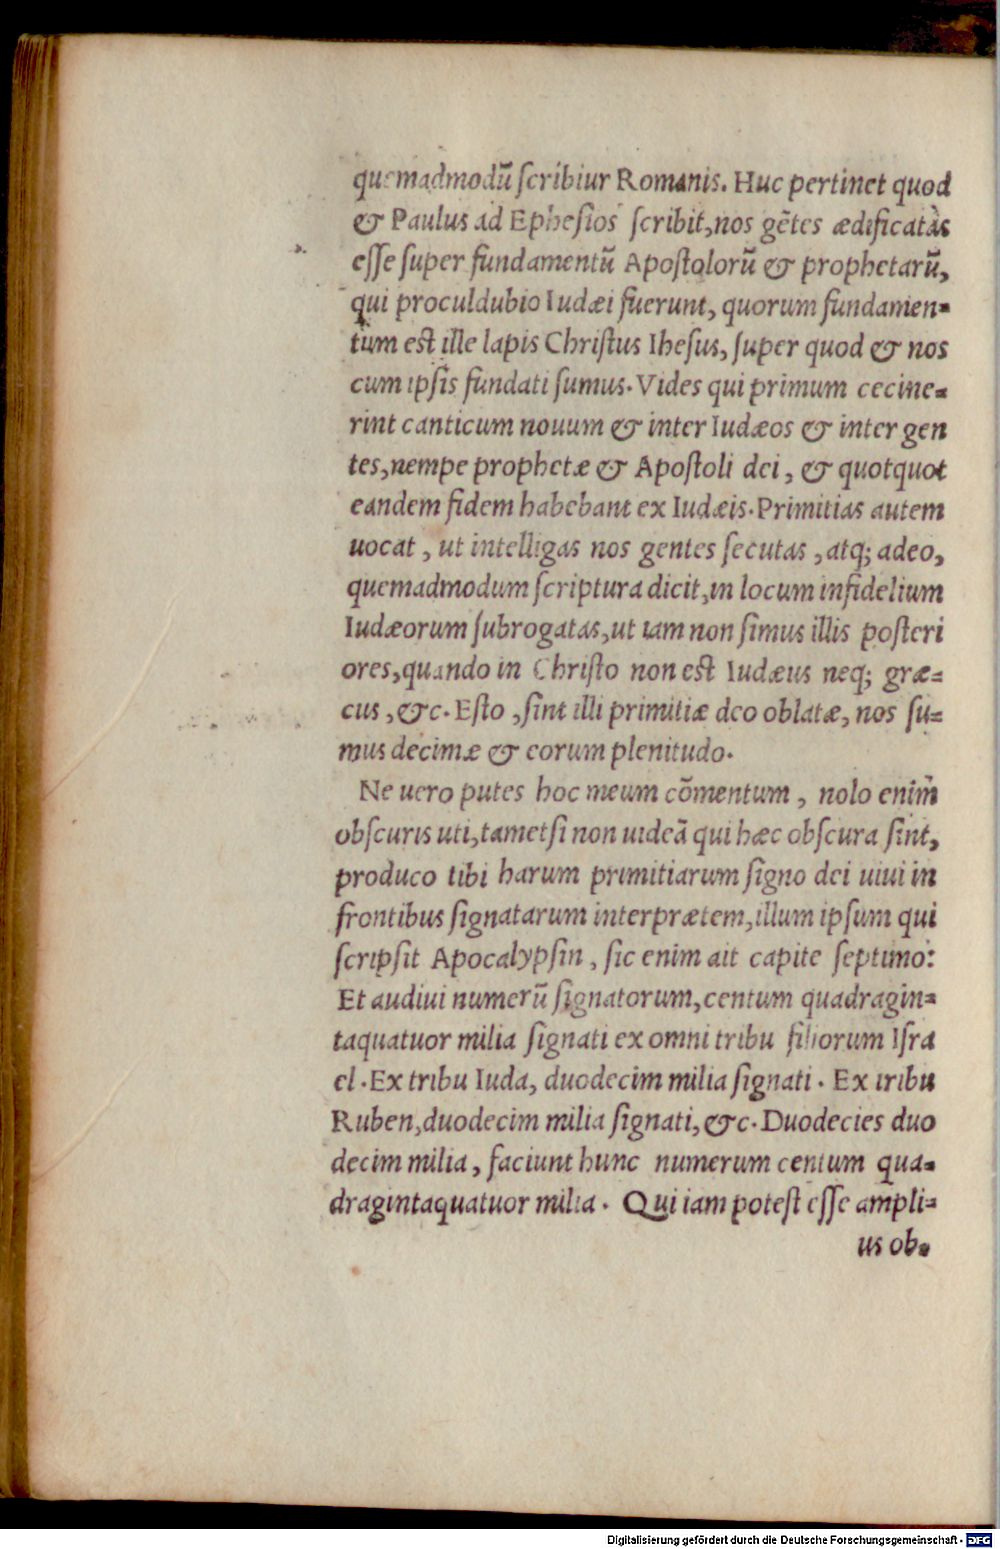 quemadmodū ſcribiur Romanis. Huc pertinet quod
& Paulus ad Epheſios ſcribit, nos gētes ædificatas
eſſe ſuper fundamentū Apoſtolorū & prophetarū,
qui proculdubio Iudæi fuerunt, quorum fundamen-
tum eſt ille lapis Chriſtus Iheſus, ſuper quod & nos
cum ipſis fundati ſumus. Vides qui primum cecine-
rint canticum nouum & inter Iudæos & inter gen
tes, nempe prophetæ & Apoſtoli dei, & quotquot
eandem fidem habebant ex Iudæis. Primitias autem
uocat, ut intelligas nos gentes ſecutas, atq; adeo,
quemadmodum ſcriptura dicit, in locum infidelium
Iudæorum ſubrogatas, ut iam non ſimus illis poſteri
ores, quando in Chriſto non eſt Iudæus neq; græ-
cus, &c. Eſto, ſint illi primitiæ deo oblatæ, nos ſu-
mus decimæ & eorum plenitudo.
Ne uero putes hoc meum cōmentum, nolo enim
obſcuris uti, tametſi non uideā qui hæc obſcura ſint,
produco tibi harum primitiarum ſigno dei uiui in
frontibus ſignatarum interprætem, illum ipſum qui
ſcripſit Apocalypſin, ſic enim ait capite ſeptimo:
Et audiui numerū ſignatorum, centum quadragin-
taquatuor milia ſignati ex omni tribu filiorum Iſra
el. Ex tribu Iuda, duodecim milia ſignati. Ex tribu
Ruben, duodecim milia ſignati, &c. Duodecies duo
decim milia, faciunt hunc numerum centum qua-
dragintaquatuor milia. Qui iam poteſt eſſe ampli-
us ob-
Digitalisierung gefördert durch die Deutsche Forschungsgemeinschaft - DFG